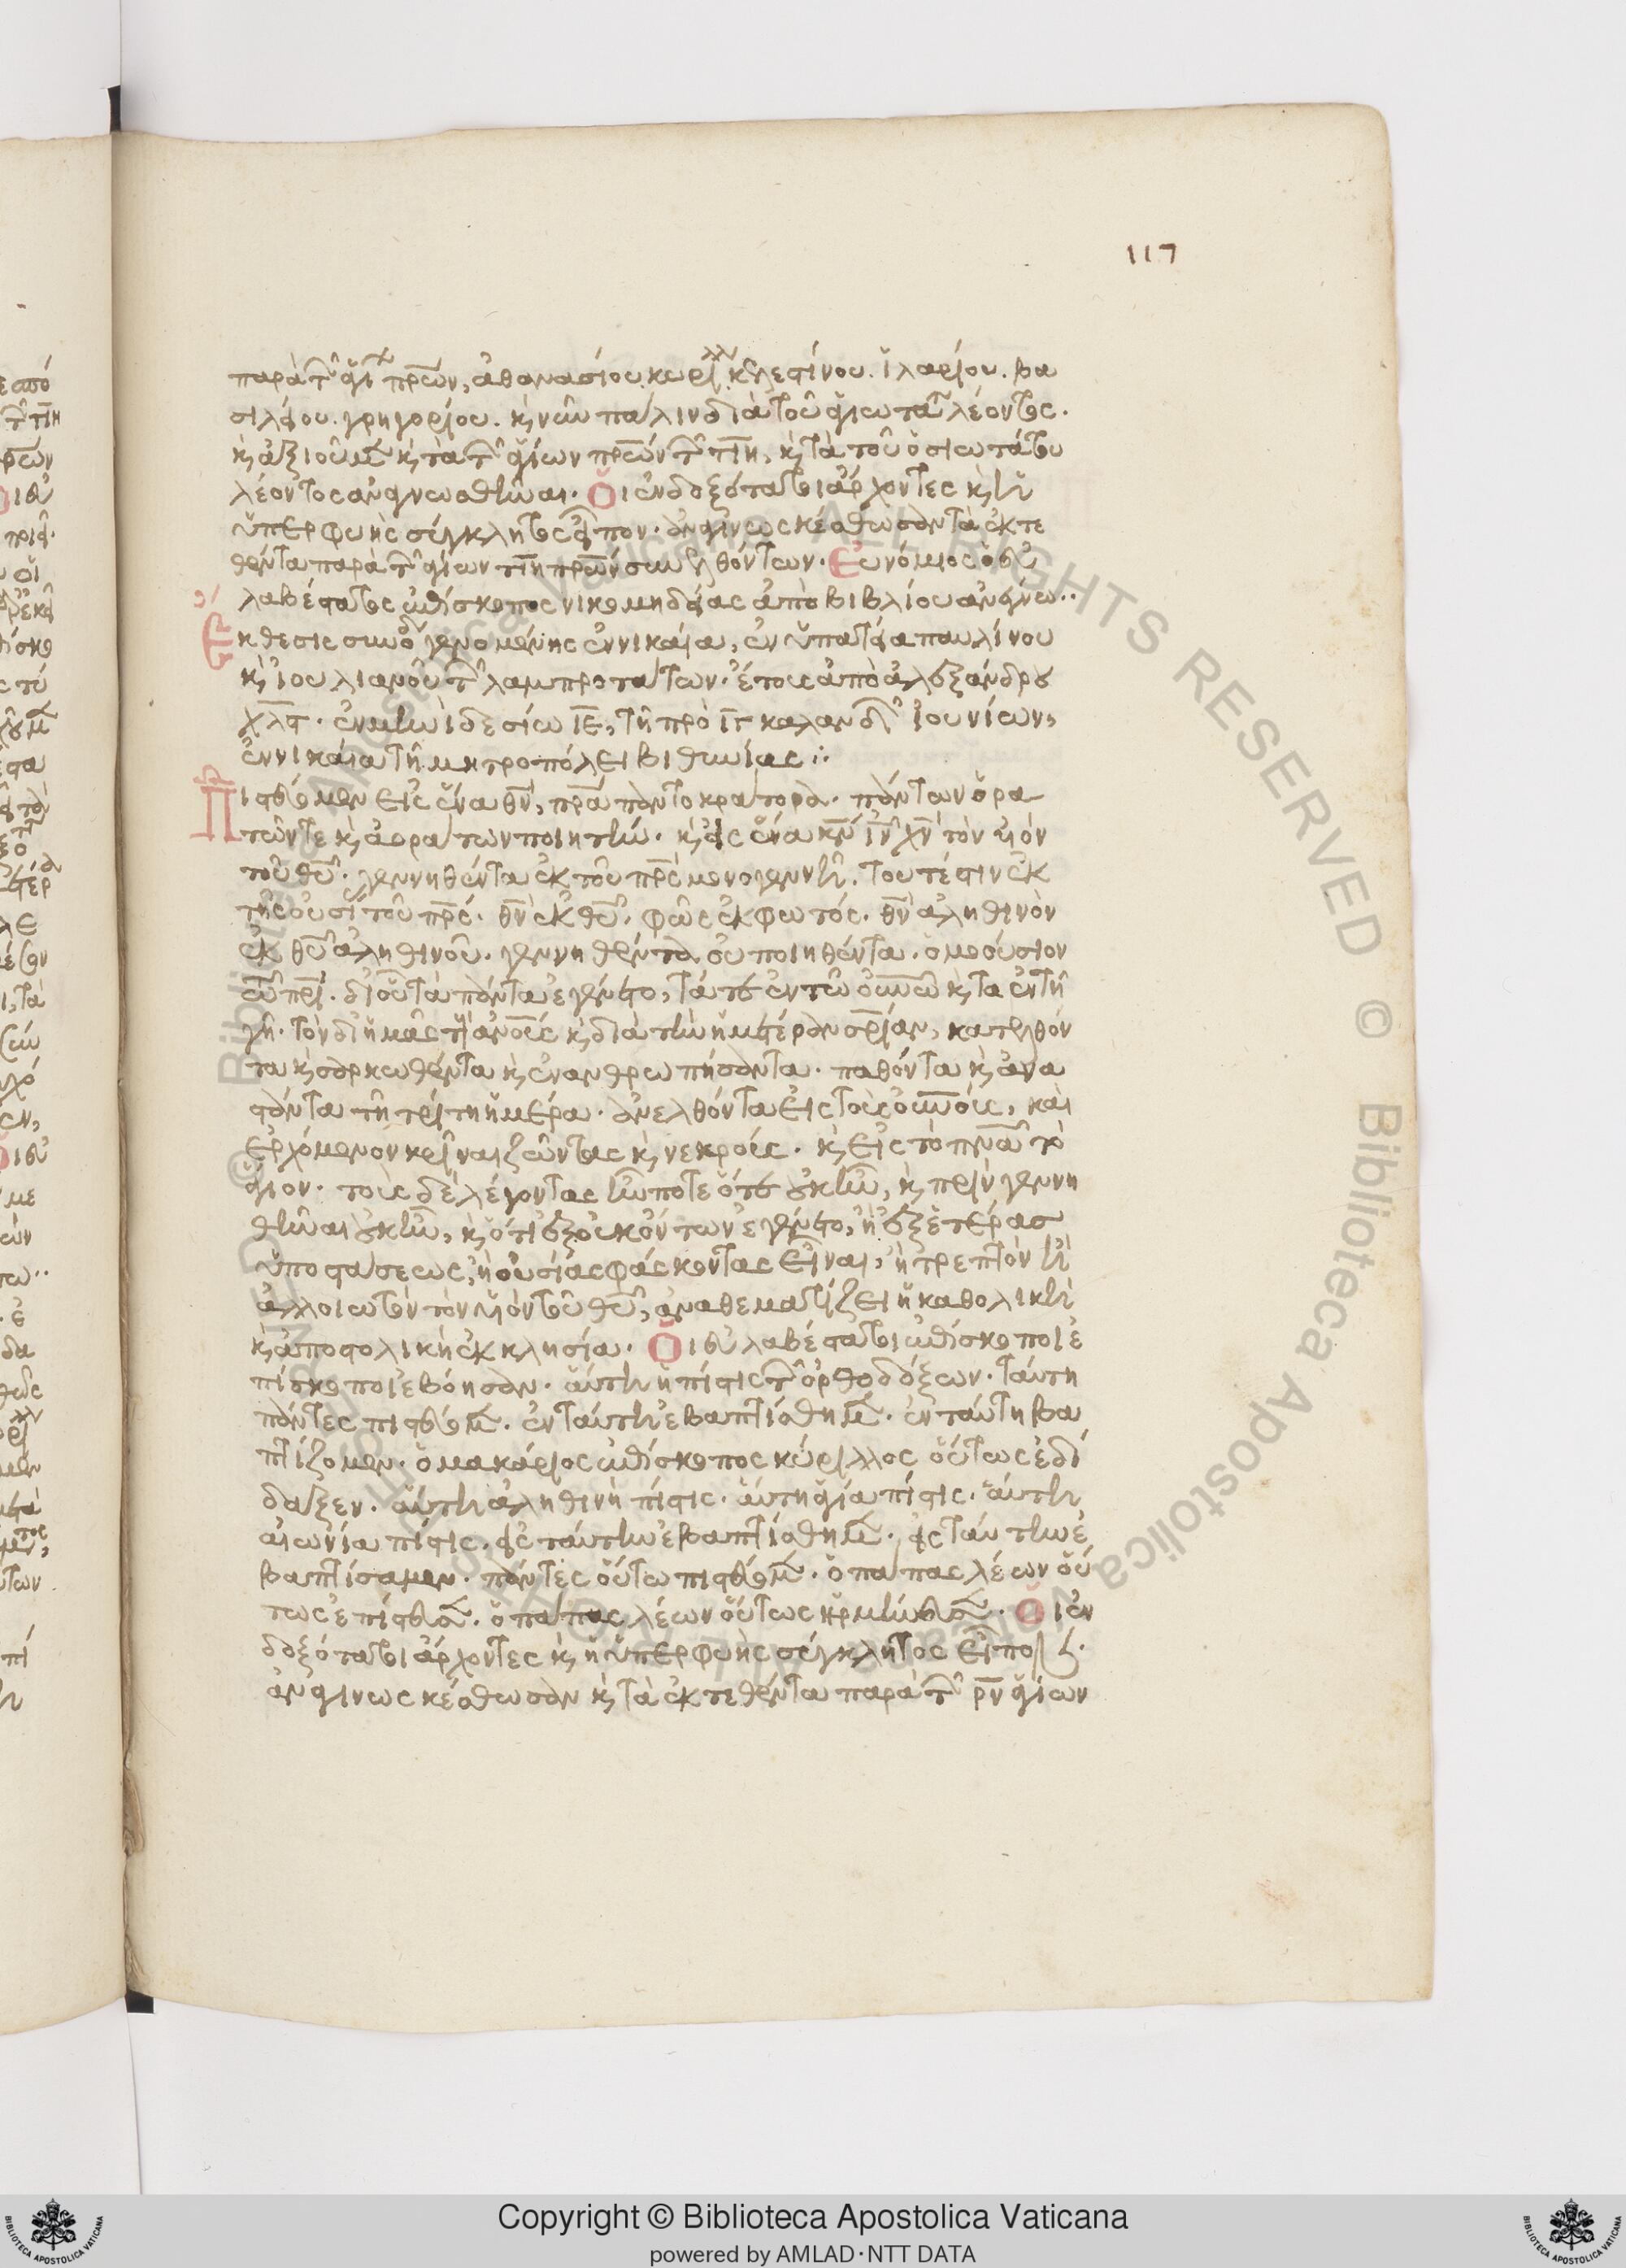 117
παρὰ τῶν ἁγί πρων, ἀθανασίου. κυρίλλ. κελεστίνου. ἱλαρίου. βα
σιλείου. γρηγορίου. κ νῦν πάλιν διὰ τοῦ ἁγιωτά λέοντος.
κ ἀξιοῦμ κ τὰ τῶν ἁγίων πρων τῶν τιη, κ τὰ τοῦ ὁσιωτάτου
λέοντος ἀναγνωσθῆναι. Οἱ ἐνδοξότατοι ἄρχοντες κ ἡ
ὑπερφυὴς σύγκλητος εἶπον. ἀναγινωσκέσθωσαν τὰ ἐκτε
θέντα παρὰ τῶν ἁγίων τιη πρων συνελθόντων. Εὐνόμιος ὁ εὐ
λαβέστατος ἐπίσκοπος νικομηδείας ἀπὸ βιβλίου ἀνέγνω..
Ἔκθεσις συνόδ γενομένης ἐν νικαία, ἐν ὑπατεία παυλίνου
κ ἰουλιανοῦ τῶν λαμπροτάτων. ἔτους ἀπὸ ἀλεξάνδρου
χλϛ. ἐν μηνὶ δεσίω ιε, τῇ πρὸ ιγ καλανδ ἰουνίων,
ἐν νικαία τῇ μητροπόλει βιθυνίας :·
Πιστεύομεν εἰς ἕνα θν, πρα παντοκράτορα. πάντων ὁρα
τῶν τε κ ἀοράτων ποιητήν. κ εἰς ἕνα κν ιν χν τὸν υἱὸν
τοῦ θυ. γεννηθέντα ἐκ τοῦ πρς μονογενῆ. τουτέστιν ἐκ
τῆς οὐσί τοῦ πρς. θν ἐκ θυ. φῶς ἐκ φωτός. θν ἀληθινὸν
ἐκ θυ ἀληθινοῦ. γεννηθέντα οὐ ποιηθέντα. ὁμοούσιον
τῶ πρι. δι' οὗ τὰ πάντα ἐγένετο, τά τε ἐν τῶ οὐνω κ τὰ ἐν τῇ
γῇ. τὸν δι' ἡμᾶς τοὺς ἀνους κ διὰ τὴν ἡμετέραν σριαν, κατελθόν
τα κ σαρκωθέντα κ ἐνανθρωπήσαντα. παθόντα κ ἀνα
στάντα τῇ τρίτη ἡμέρα. ἀνελθόντα εἰς τοὺς οὐνους, καὶ
ἐρχόμενον κρῖναι ζῶντας κ νεκρούς. κ εἰς τὸ πνα τὸ
ἅγιον. τοὺς δὲ λέγοντας ἦν ποτε ὅτε οὐκ ἦν, κ πρὶν γεννη
θῆναι οὐκ ἦν, κ ὅτι ἐξ οὐκ ὄντων ἐγένετο, ἢ ἐξ ἑτέρας
ὑποστάσεως, ἢ οὐσίας φάσκοντας εἶναι, ἢ τρεπτὸν ἢ
ἀλλοιωτὸν τὸν υἱὸν τοῦ θυ, ἀναθεματίζει ἡ καθολικὴ
κ ἀποστολικὴ ἐκκλησία. Οἱ εὐλαβέστατοι ἐπίσκοποι ἐ
πίσκοποι ἐβόησαν. αὕτη ἡ πίστις τῶν ὀρθοδόξων. ταύτη
πάντες πιστεύομ. ἐν ταύτη ἐβαπτίσθημ. ἐν ταύτη βα
πτίζομεν. ὁ μακάριος ἐπίσκοπος κύριλλος οὕτως ἐδί
δαξεν. αὕτη ἀληθινὴ πίστις. αὕτη ἁγία πίστις. αὕτη
αἰωνία πίστις. εἰς ταύτην ἐβαπτίσθημ. εἰς ταύτην ἐ
βαπτίσαμεν. πάντες οὕτω πιστεύομ. ὁ πάπας λέων οὕ
τως ἐπίστευσ. ὁ πάπας λέων οὕτως ἡρμήνευσ. Οἱ ἐν
δοξότατοι ἄρχοντες κ ἡ ὑπερφυὴς σύγκλητος εἶπον.
ἀναγινωσκέσθωσαν κ τὰ ἐκτεθέντα παρὰ τῶν ρν ἁγίων
© Biblioteca Apostolica Vaticana ALL RIGHTS RESERVED
Copyright © Biblioteca Apostolica Vaticana
powered by AMLAD·NTT DATA